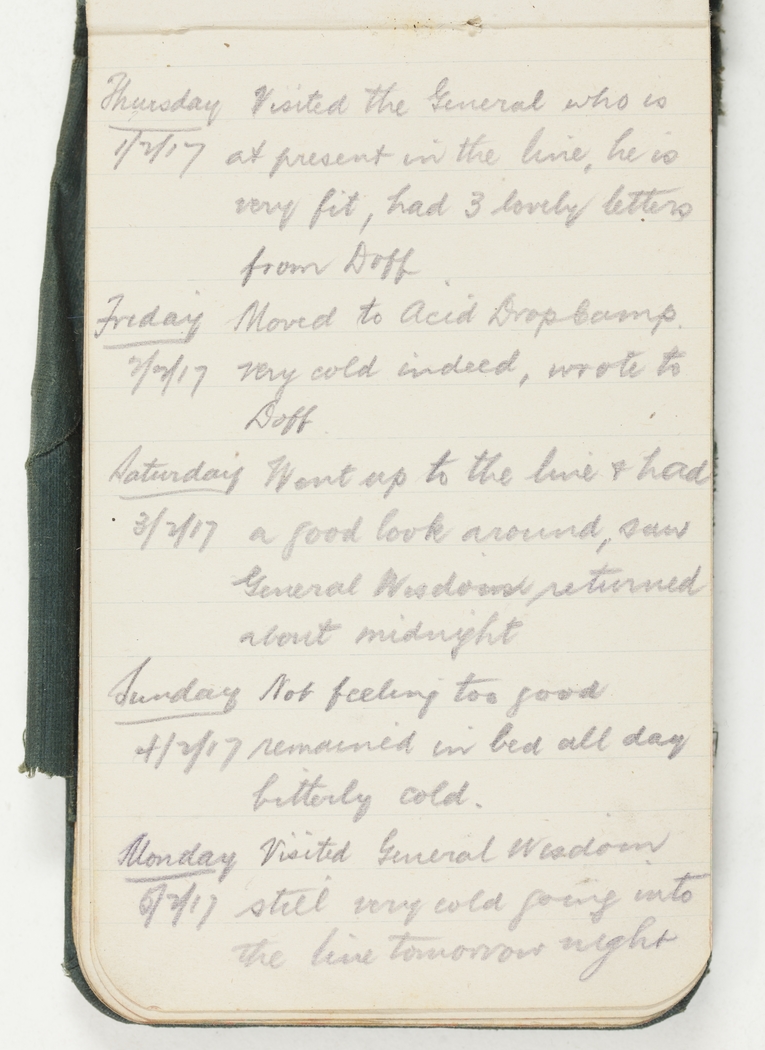 Thursday Visited the General who is
1/2/17 at present in the line, he is
very fit, had 3 lovely letters
from Doff
Friday Moved to Acid Drop Camp.
2/2/17 very cold indeed, wrote to
Doff.
Saturday Went up to the line & had
3/2/17 a good look around, saw
General Wisdom returned
about midnight
Sunday Not feeling too good
4/2/17 remained in bed all day
bitterly cold.
Monday Visited General Wisdom
5/2/17 still very cold going into
the line tomorrow night